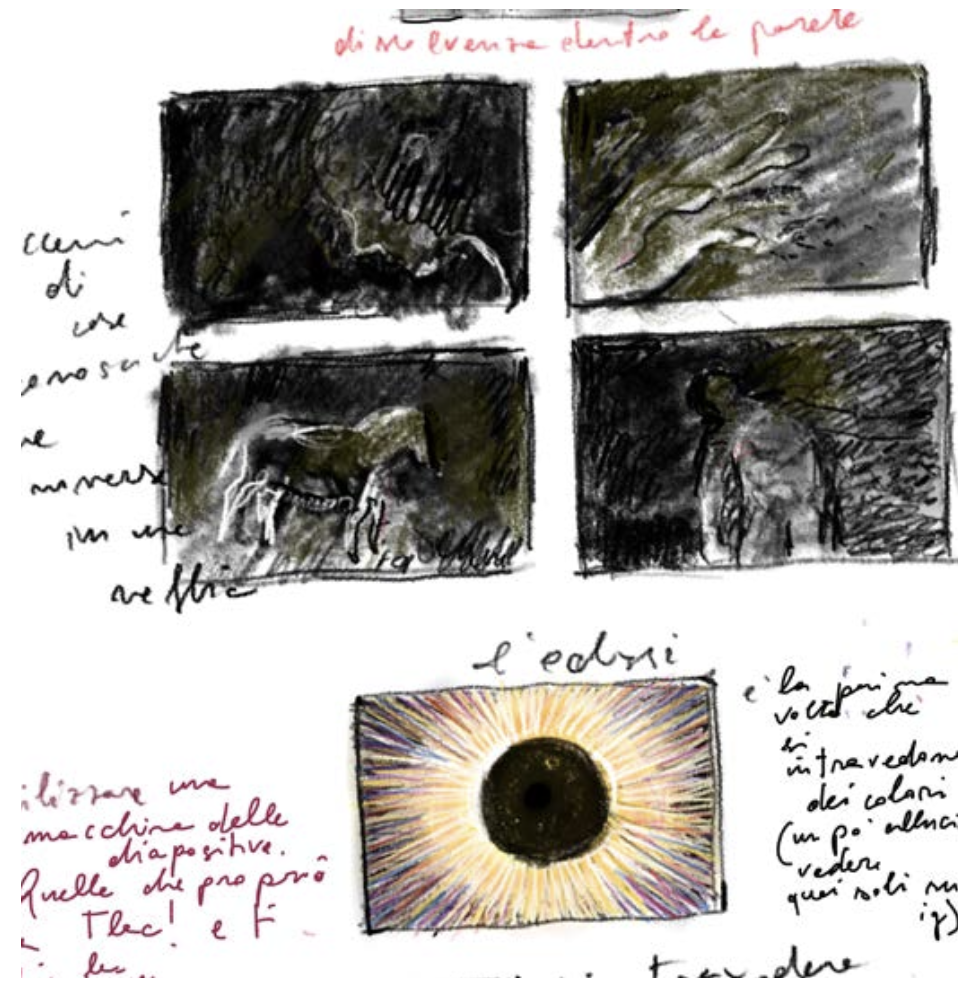 dissolvenza dentro la parete
di
cose
immerse
in una
nebbia
l'eclissi
è la prima
volta che
si
intravedono
dei colori
(un po' alluci
vedere
quei soli su
ig)
ilizzare una
macchina delle
diapositive.
Quelle che proprio
Tlac! e
intravedere